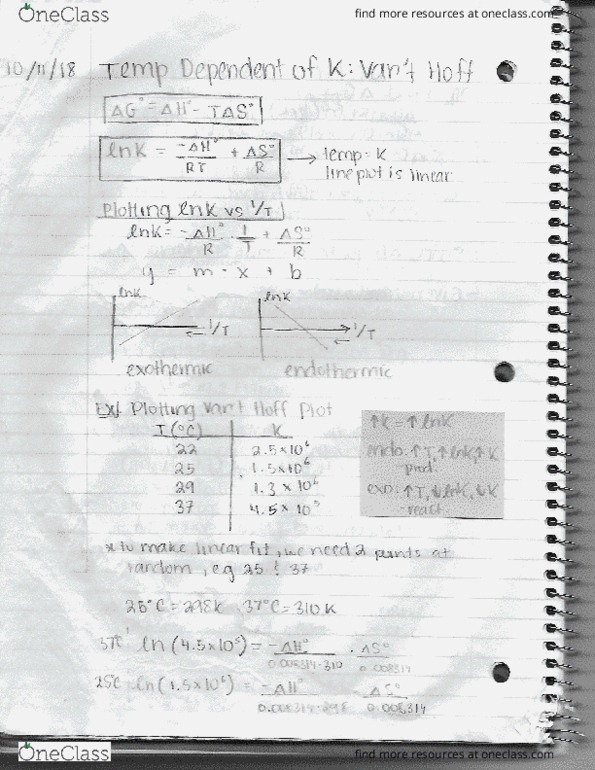 OneClass
find more resources at oneclass.com
10/11/18 Temp Dependent of K: Van't Hoff
ΔG° = ΔH° - TΔS°
lnK = -ΔH°/RT + ΔS°/R → temp = K
line plot is linear
Plotting lnK vs 1/T
lnK = -ΔH°/R · 1/T + ΔS°/R
y = m · x + b
lnK lnK
1/T 1/T
exothermic endothermic
Ex/ Plotting Van't Hoff Plot
T(°C) K
22 2.5×10⁶
25 1.5×10⁶
29 1.3 × 10⁶
37 4.5 × 10⁵
↑K = ↑lnK
endo: ↑T, ↑lnK, ↑K
prod.
exo: ↑T, ↓lnK, ↓K
react
* to make linear fit, we need 2 points at
random, eg 25 & 37
25°C = 298K 37°C = 310K
37°C ln(4.5×10⁵) = -ΔH°/0.008314·310 · ΔS°/0.008314
25°C ln(1.5×10⁶) = -ΔH°/0.008314·298 ΔS°/0.008314
OneClass
find more resources at oneclass.com